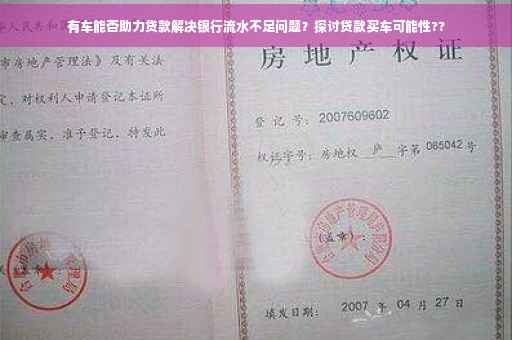 有车能否助力贷款解决银行流水不足问题？探讨贷款买车可能性??
人民共和国
市房地产管理法》及有关法
定，对权利人申请登记本证所
审查属实，准予登记，特发此
房地产权证
登记号：2007609602
权证字号：房地权 庐 字第 065042 号
(盖章)：
填发日期：2007 年 04 月 27 日